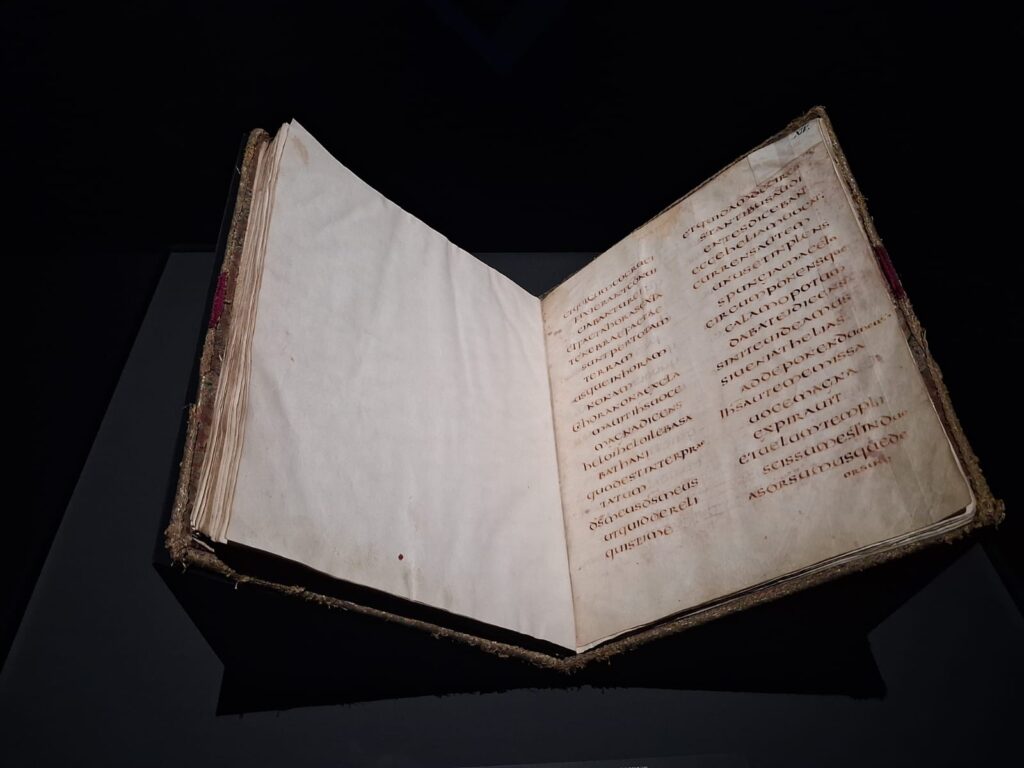 etquicumeocruci
fixierantconui
ciabanturei
etfactahorasexta
tenebraefactae
suntpertotam
terram
usqueinhoram
nonam
ethoranonaexcla
mauitihsuoce
magnadicens
heloiheloilebasa
bathani
quodestinterprae
tatum
dsmeusdsmeus
utquidereli
quistime
etquidamdecircu
stantibusaudi
entesdiceban
ecceheliamuocat
currensautem
unusetinplens
spungiamaceto
circumponensque
calamopotum
dabateidicens
siniteuideamus
siueniathelias
addeponendumeum
ihsautememissa
uocemagna
expirauit
etuelumtempli
scissumestinduo
asorsumusquede
orsum